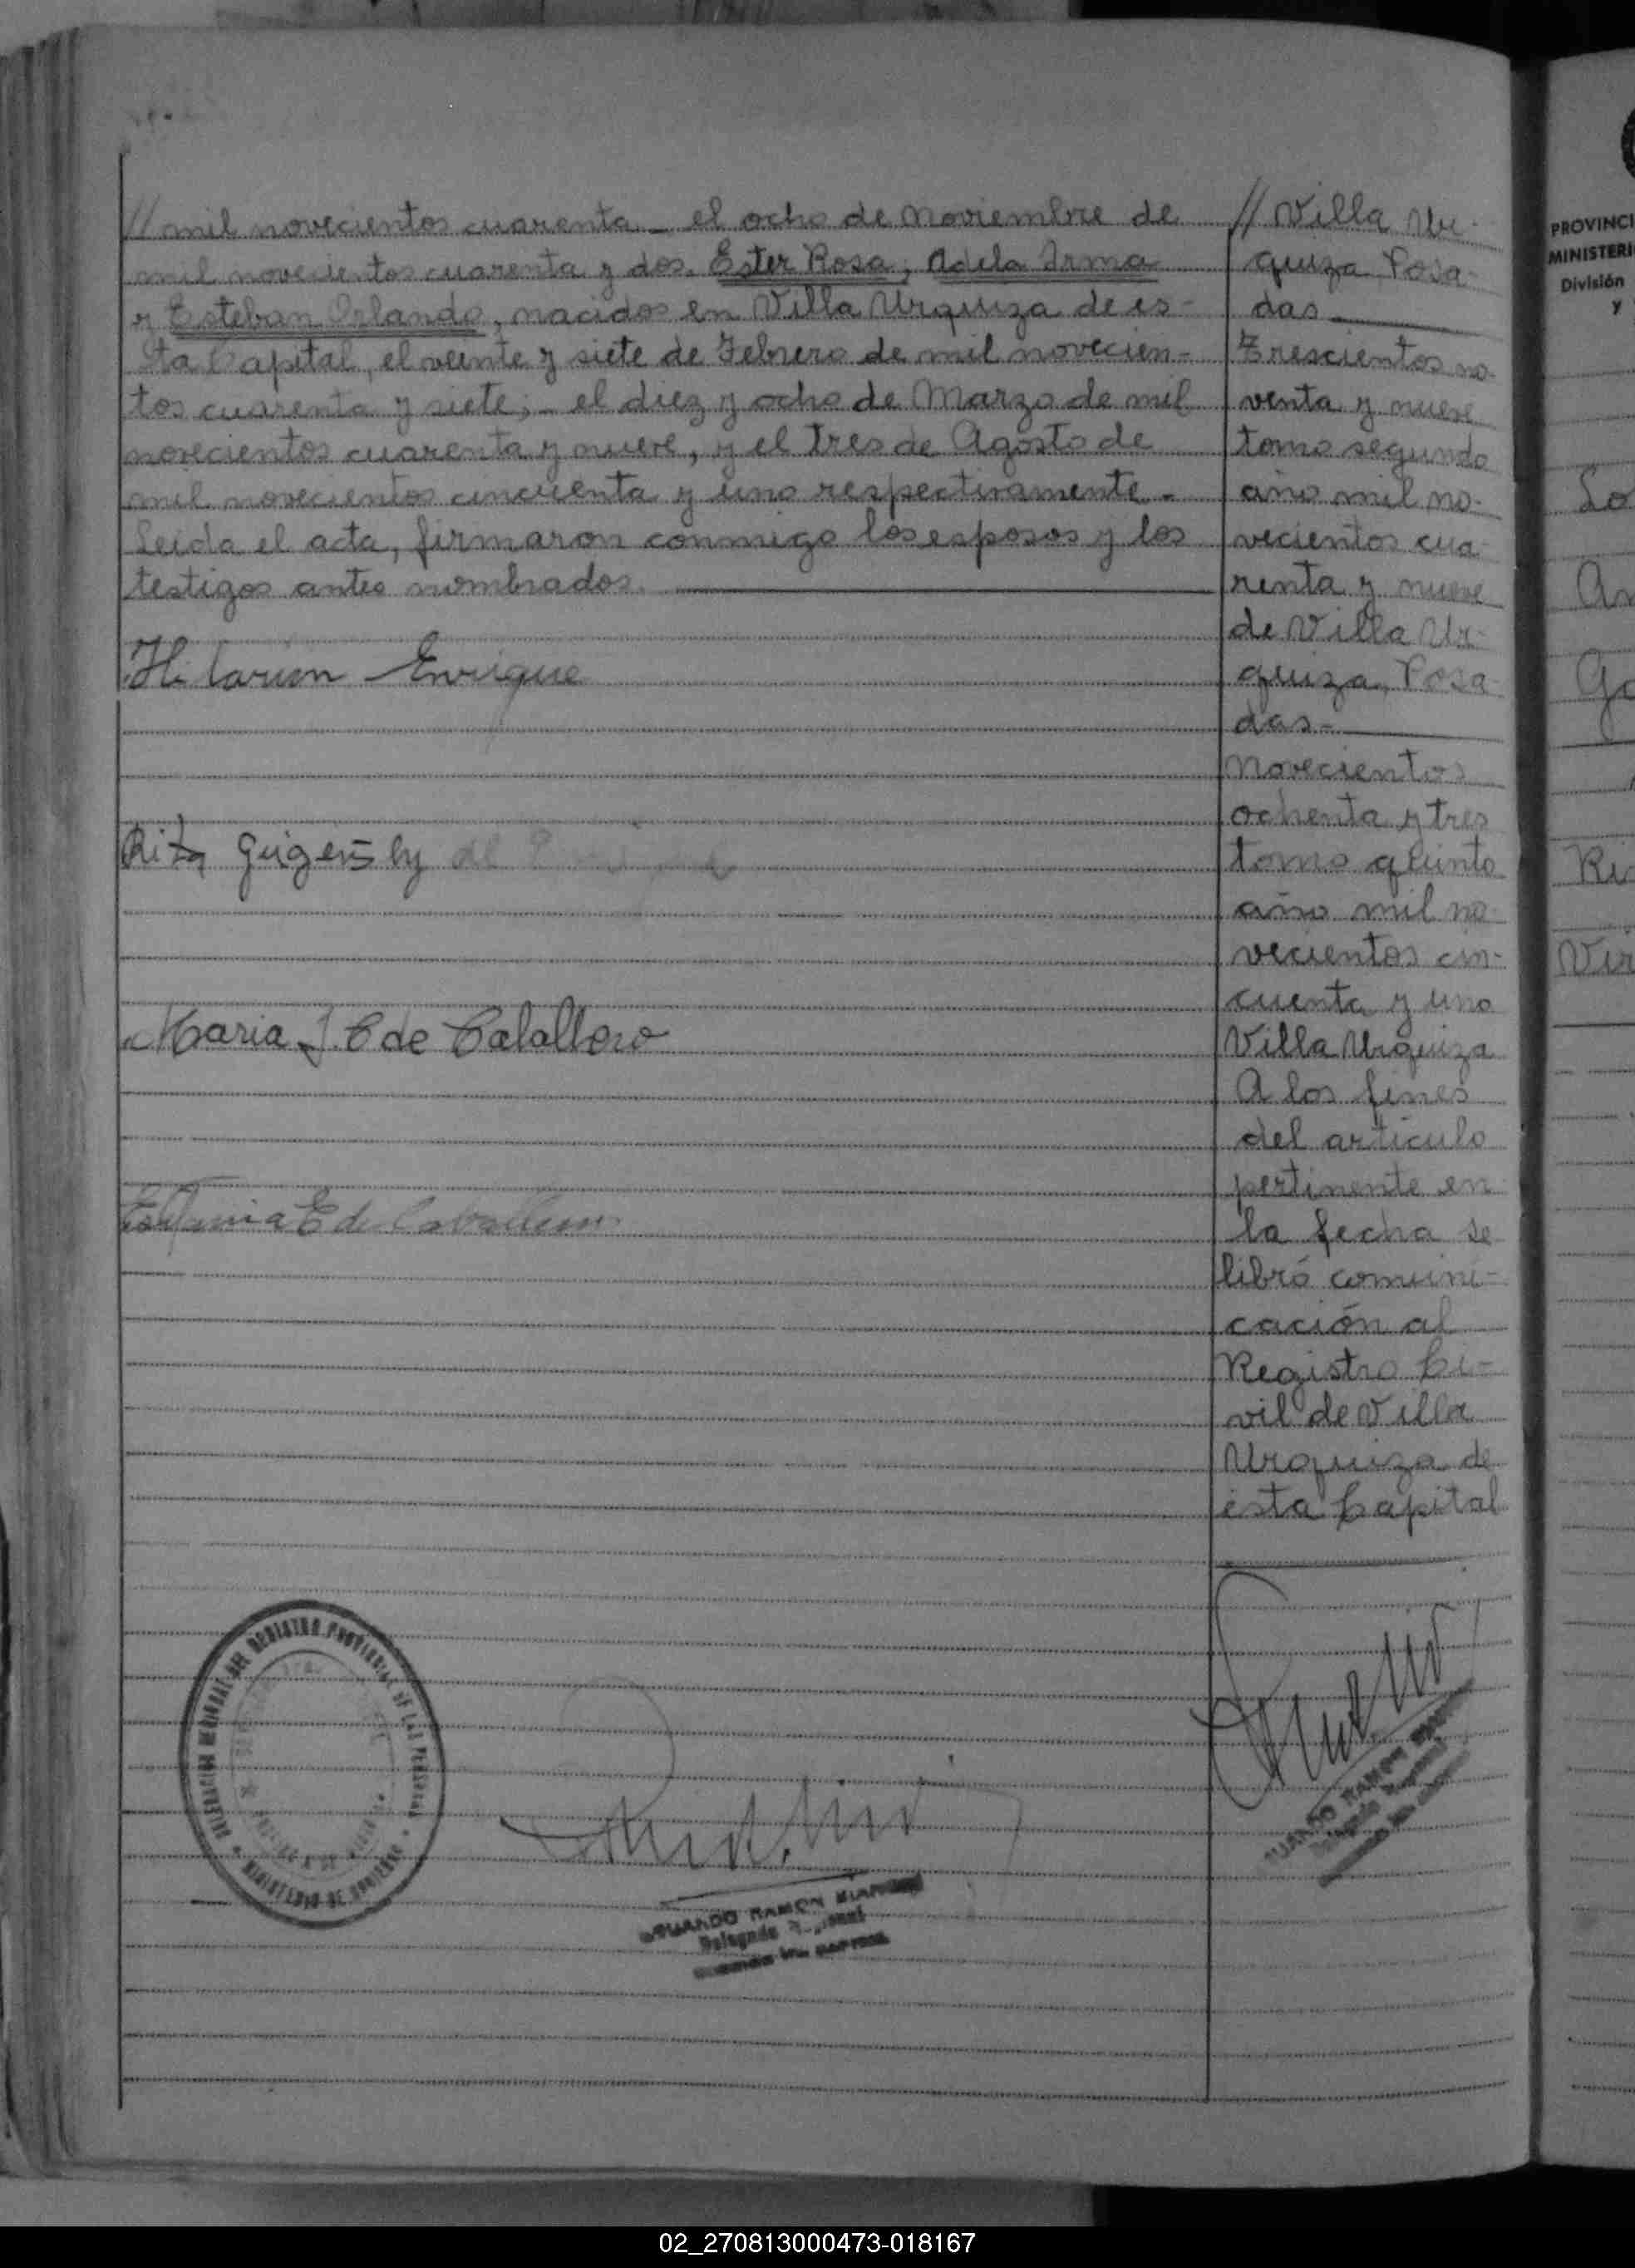 // mil novecientos cuarenta - el ocho de Noviembre de
mil novecientos cuarenta y dos. Ester Rosa, Adela Irma
y Esteban Orlando, nacidos en Villa Urquiza de es-
ta Capital, el veinte y siete de Febrero de mil novecien-
tos cuarenta y siete; - el diez y ocho de Marzo de mil
novecientos cuarenta y nueve, y el tres de Agosto de
mil novecientos cincuenta y uno respectivamente. -
Leida el acta, firmaron conmigo los esposos y los
testigos antes nombrados.
Hilarion Enrique
Rita de
Maria J. C de Caballero
E de Caballero
// Villa Ur-
quiza Posa-
das
Trescientos no-
venta y nueve
tomo segundo
año mil no-
vecientos cua-
renta y nueve
de Villa Ur-
quiza, Posa-
das -
Novecientos
ochenta y tres
tomo quinto
año mil no-
vecientos cin-
cuenta y uno
Villa Urquiza
A los fines
del articulo
pertinente en
la fecha se
libró comuni-
cación al
Registro Ci-
vil de Villa
Urquiza de
ésta Capital
DEL REGISTRO PROVINCIAL DE LAS PERSONAS
MINISTERIO DE GOBIERNO
RAMON
Delegado Regional
RAMON
Delegado Regional
PROVINCI
MINISTERI
División
y
Lo
An
Go
Ri
Vir
02_270813000473-018167